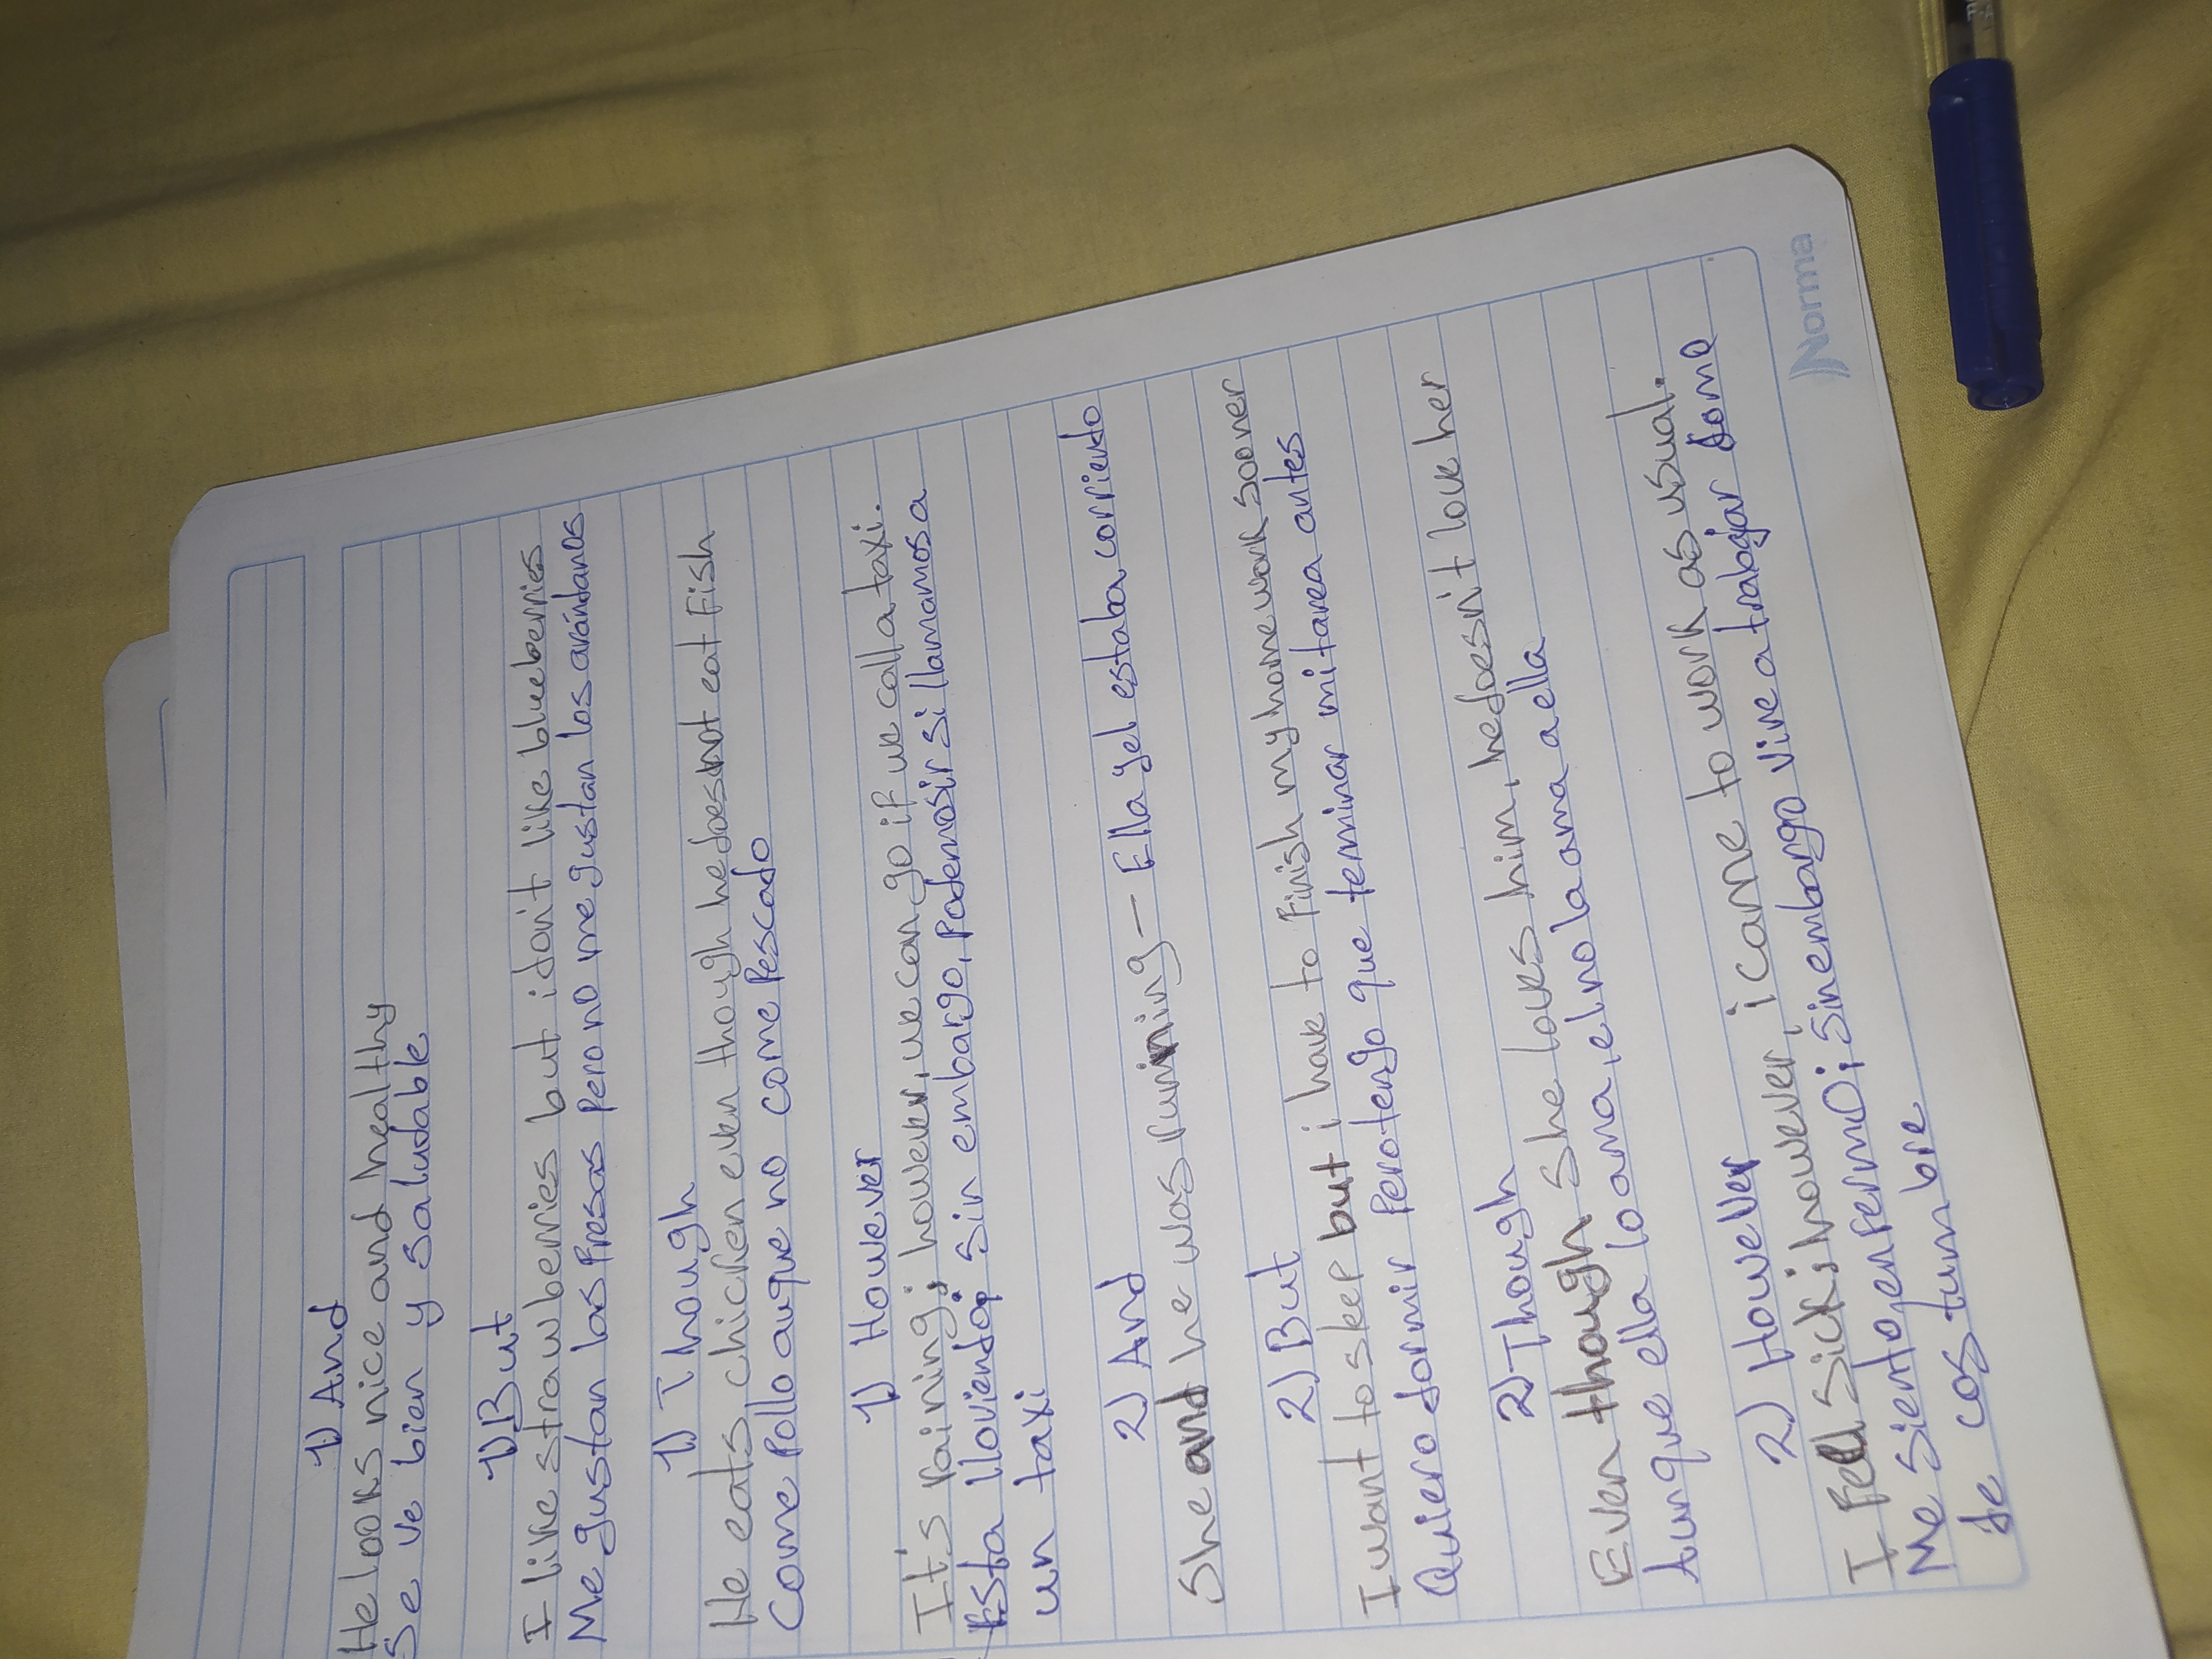 1) And
He looks nice and healthy
Se ve bien y saludable
1) But
I like strawberries but i don't like blueberries
Me gustan las fresas pero no me gustan los arándanos
1) Though
He eats chicken even though he does not eat fish
Come pollo auque no come Pescado
1) However
It's raining; however, we can go if we call a taxi.
Esta lloviendo; sin embargo, Podemos ir si llamamos a
un taxi
2) And
She and he was running - Ella y el estaba corriendo
2) But
I want to sleep but i have to finish my homework sooner
Quiero dormir Pero tengo que terminar mi tarea antes
2) Though
Even though She loves him, he doesn't love her
Aunque ella lo ama, el no la ama a ella
2) However
I Fell sick; however, i came to work as usual.
Me siento enfermo; sin embargo vine a trabajar como
de costumbre
Norma